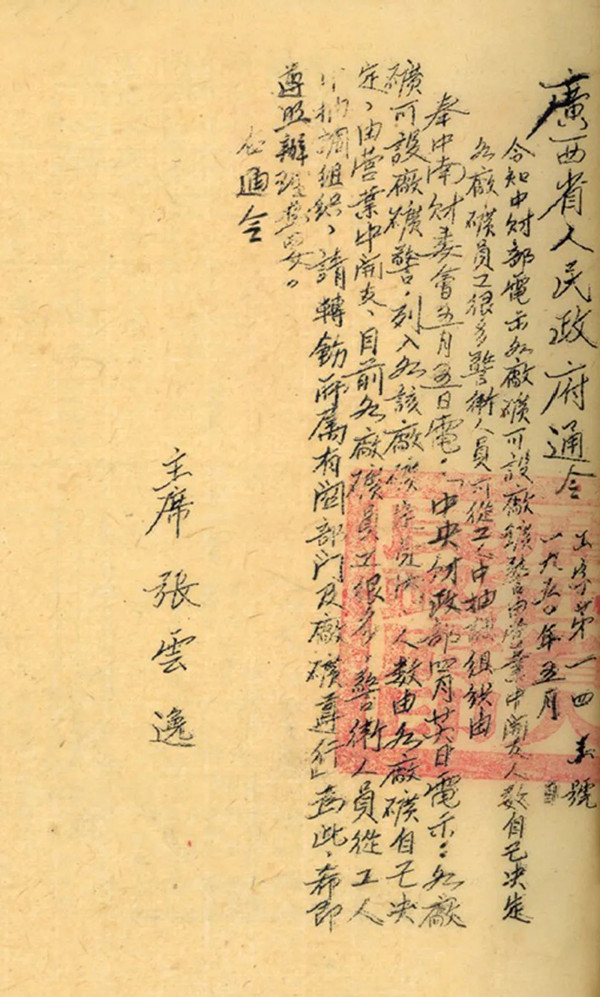 廣西省人民政府通令
字第一四 號
一九五〇年五月 日
令知中財部電示各廠礦可設廠礦警由營業中開支人數自己決定
各廠礦員工很多警衛人員可從工人中抽調組織由
奉中南財委會五月五日電：「中央財政部四月廿八日電示：各廠
礦可設廠礦警，列入各該廠礦 人數由各廠礦自己決
定，由營業中開支、目前各廠礦員工很多，警衛人員從工人
中抽調組織、請轉飭所屬有關部門及廠礦遵行」為此，希即
遵照辦理為要。
此通令
主席 張雲逸